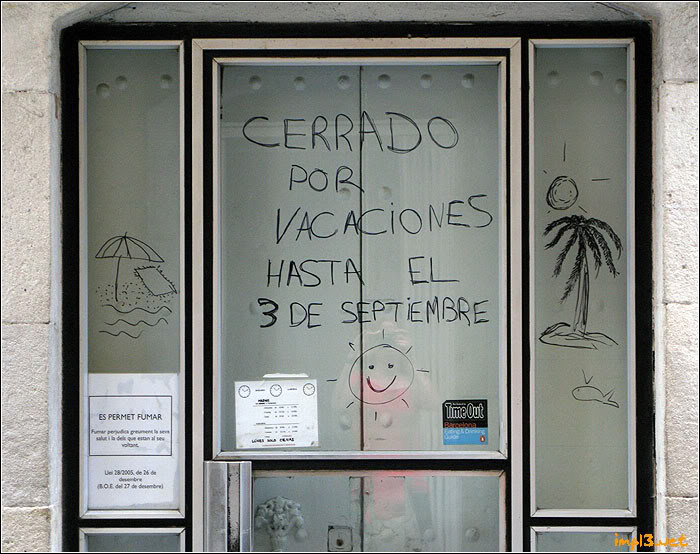 CERRADO
POR
VACACIONES
HASTA EL
3 DE SEPTIEMBRE
ES PERMET FUMAR
Fumar perjudica greument la seva
salut i la dels que estan al seu
voltant.
Llei 28/2005, de 26 de
desembre
(B.O.E. del 27 de desembre)
Time Out
Barcelona
Eating & Drinking
Guide
impl3.net